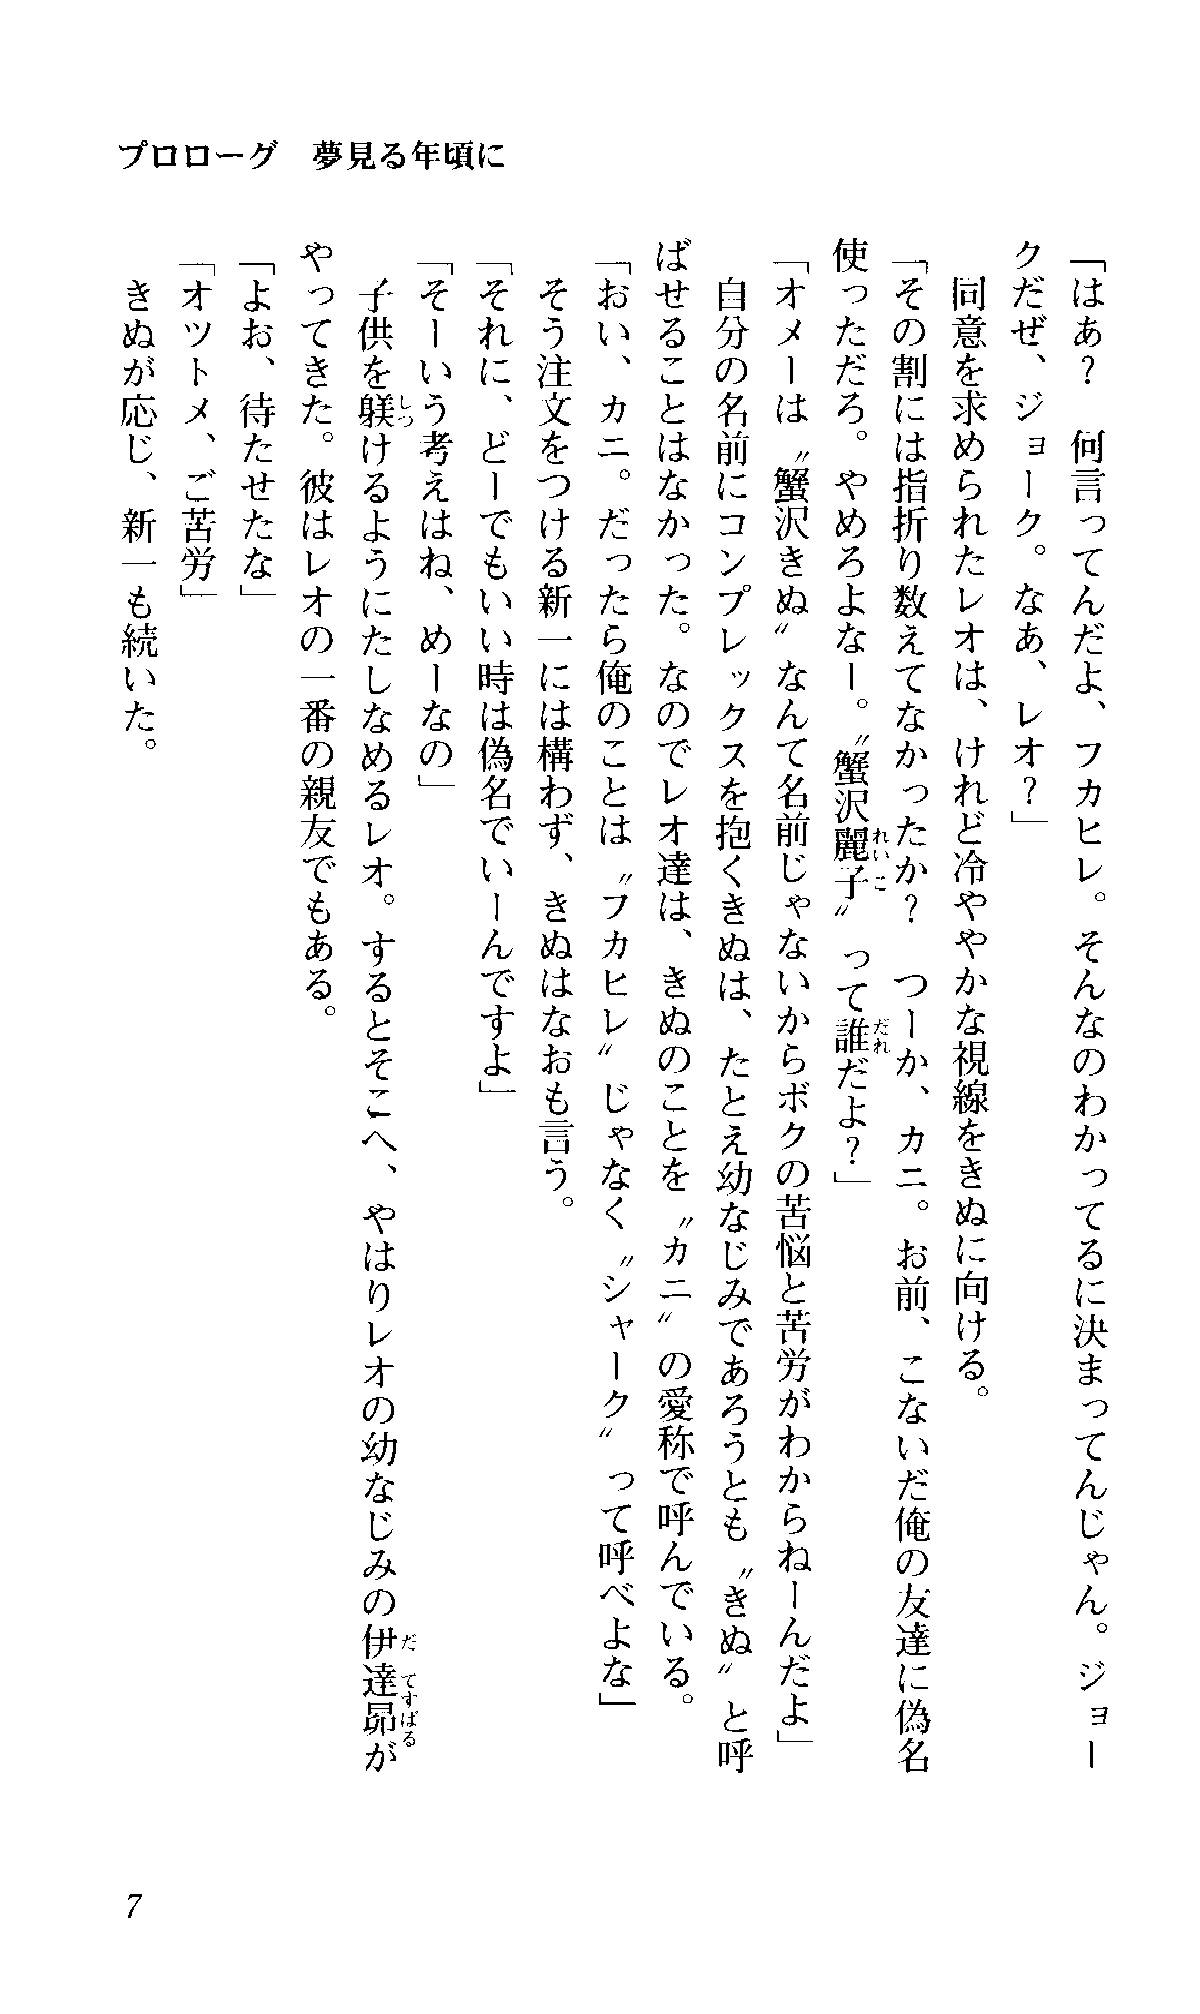 プロローグ　夢見る年頃に
「はあ？　何言ってんだよ、フカヒレ。そんなのわかってるに決まってんじゃん。ジョー
クだぜ、ジョーク。なあ、レオ？」
　同意を求められたレオは、けれど冷ややかな視線をきぬに向ける。
「その割には指折り数えてなかったか？　つーか、カニ。お前、こないだ俺の友達に偽名
使っただろ。やめろよなー。〝蟹沢麗子〟って誰だよ？」
「オメーは〝蟹沢きぬ〟なんて名前じゃないからボクの苦悩と苦労がわからねーんだよ」
　自分の名前にコンプレックスを抱くきぬは、たとえ幼なじみであろうとも〝きぬ〟と呼
ばせることはなかった。なのでレオ達は、きぬのことを〝カニ〟の愛称で呼んでいる。
「おい、カニ。だったら俺のことは〝フカヒレ〟じゃなく〝シャーク〟って呼べよな」
　そう注文をつける新一には構わず、きぬはなおも言う。
「それに、どーでもいい時は偽名でいーんですよ」
「そーいう考えはね、めーなの」
　子供を躾けるようにたしなめるレオ。するとそこへ、やはりレオの幼なじみの伊達昴が
やってきた。彼はレオの一番の親友でもある。
「よお、待たせたな」
「オツトメ、ご苦労」
　きぬが応じ、新一も続いた。
7